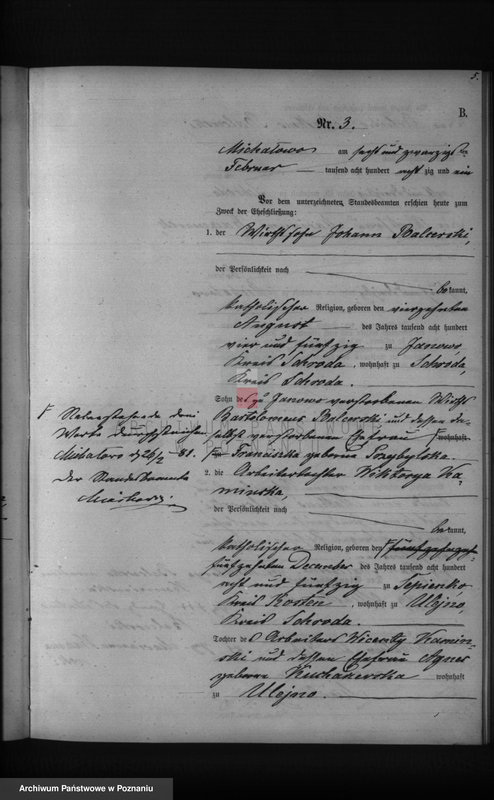 5.
B.
Nr. 3.
Michałowo am sechs und zwanzigsten
Februar tausend acht hundert acht zig und ein
Vor dem unterzeichneten Standesbeamten erschien heute zum
Zweck der Eheschließung:
1. der Wirthssohn Johann Balcerski,
der Persönlichkeit nach
be kannt,
katholischer Religion, geboren den vierzehnten
August des Jahres tausend acht hundert
vier und fünfzig zu Janowo
Kreis Schroda, wohnhaft zu Schroda
Kreis Schroda.
Sohn des zu Janowo verstorbenen Wirths
Bartolomeus Balcerski und dessen da-
selbst verstorbenen Ehefrau wohnhaft
Franciszka geborene Przybylska.
2. die Arbeitertochter Wiktorya Ka-
minska,
der Persönlichkeit nach
be kannt,
katholischer Religion, geboren den
fünfzehnten December des Jahres tausend acht hundert
acht und fünfzig zu
Kreis Kosten, wohnhaft zu Ulejno
Kreis Schroda.
Tochter des Arbeiters Wicenty Kamin-
ski und dessen Ehefrau Agnes
geborene wohnhaft
zu Ulejno.
Vorstehende drei
Worte durchstrichen
Michałowo d 26/2 81.
Der Standesbeamte
Archiwum Państwowe w Poznaniu